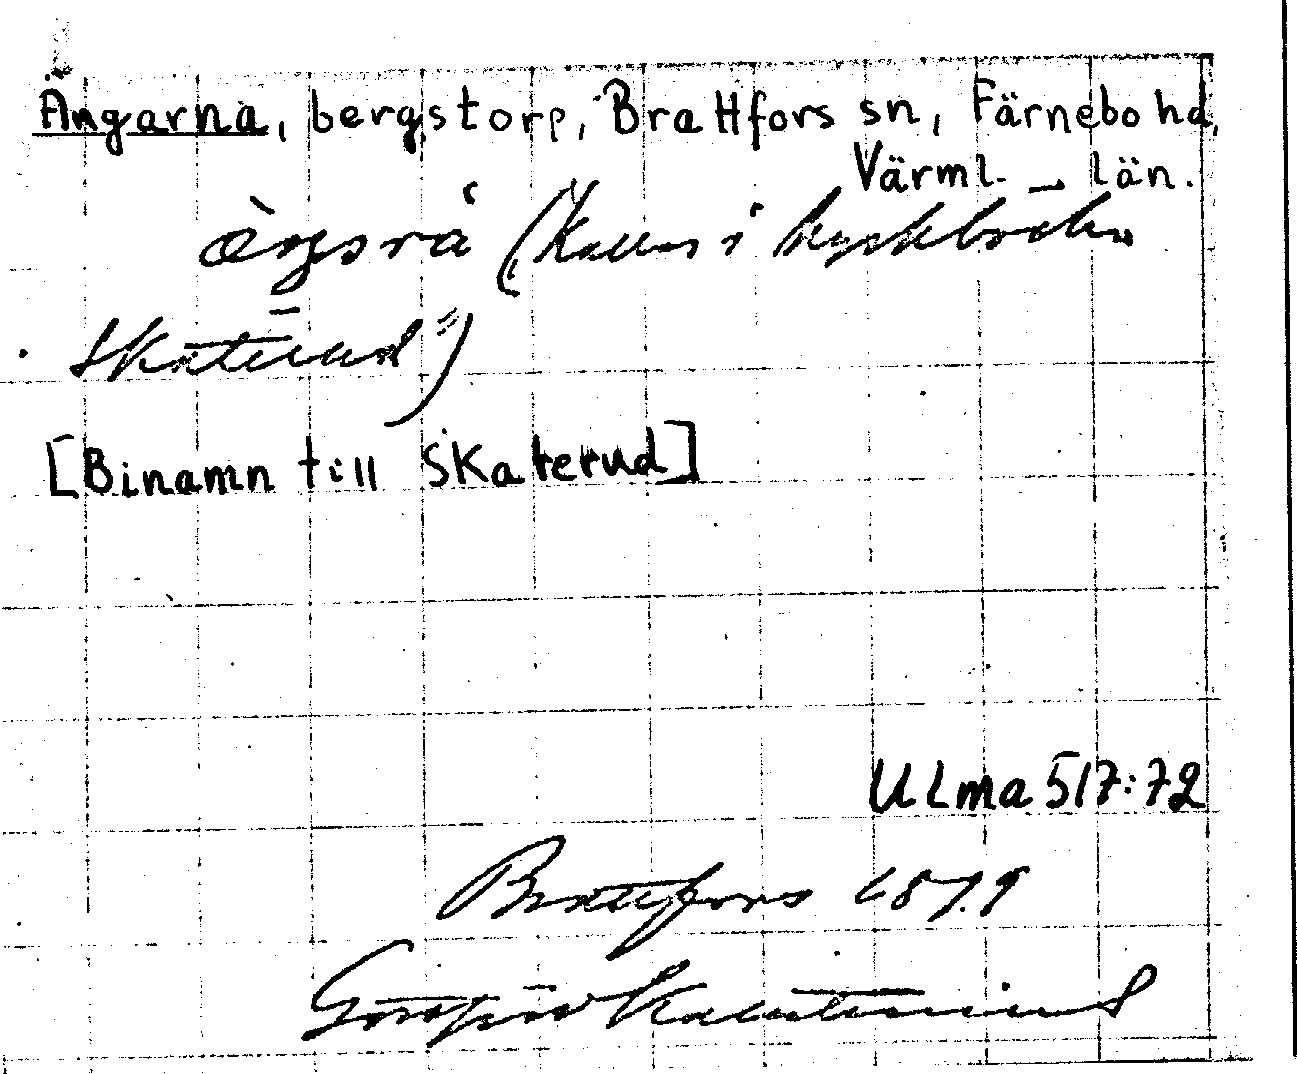 Ängarna, bergstorp, Brattfors sn, Färnebo hd,
Värml. län.
(Kallas i kyrkboken
Skaterud")
[Binamn till Skaterud]
ULma 517:72
Brattfors 1879